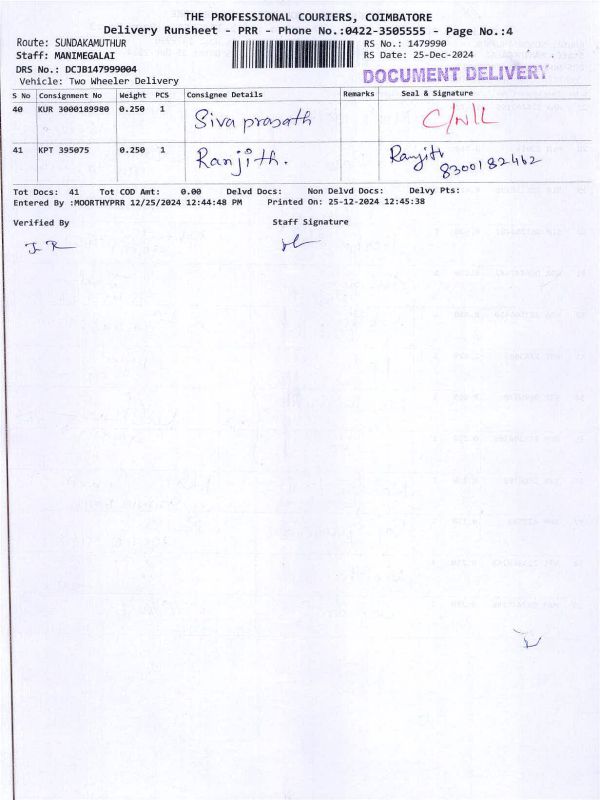 THE PROFESSIONAL COURIERS, COIMBATORE
Delivery Runsheet - PRR - Phone No.:0422-3505555 - Page No.:4
Route: SUNDAKAMUTHUR
RS No.: 1479990
Staff: MANIMEGALAI
RS Date: 25-Dec-2024
DRS No.: DCJB147999004
DOCUMENT DELIVERY
Vehicle: Two Wheeler Delivery
S No Consignment No Weight PCS Consignee Details Remarks Seal & Signature
40 KUR 3000189980 0.250 1 Siva prasath C/NIL
41 KPT 395075 0.250 1 Ranjith. Ranjith
8300182462
Tot Docs: 41 Tot COD Amt: 0.00 Delvd Docs: Non Delvd Docs: Delvy Pts:
Entered By :MOORTHYPRR 12/25/2024 12:44:48 PM Printed On: 25-12-2024 12:45:38
Verified By Staff Signature